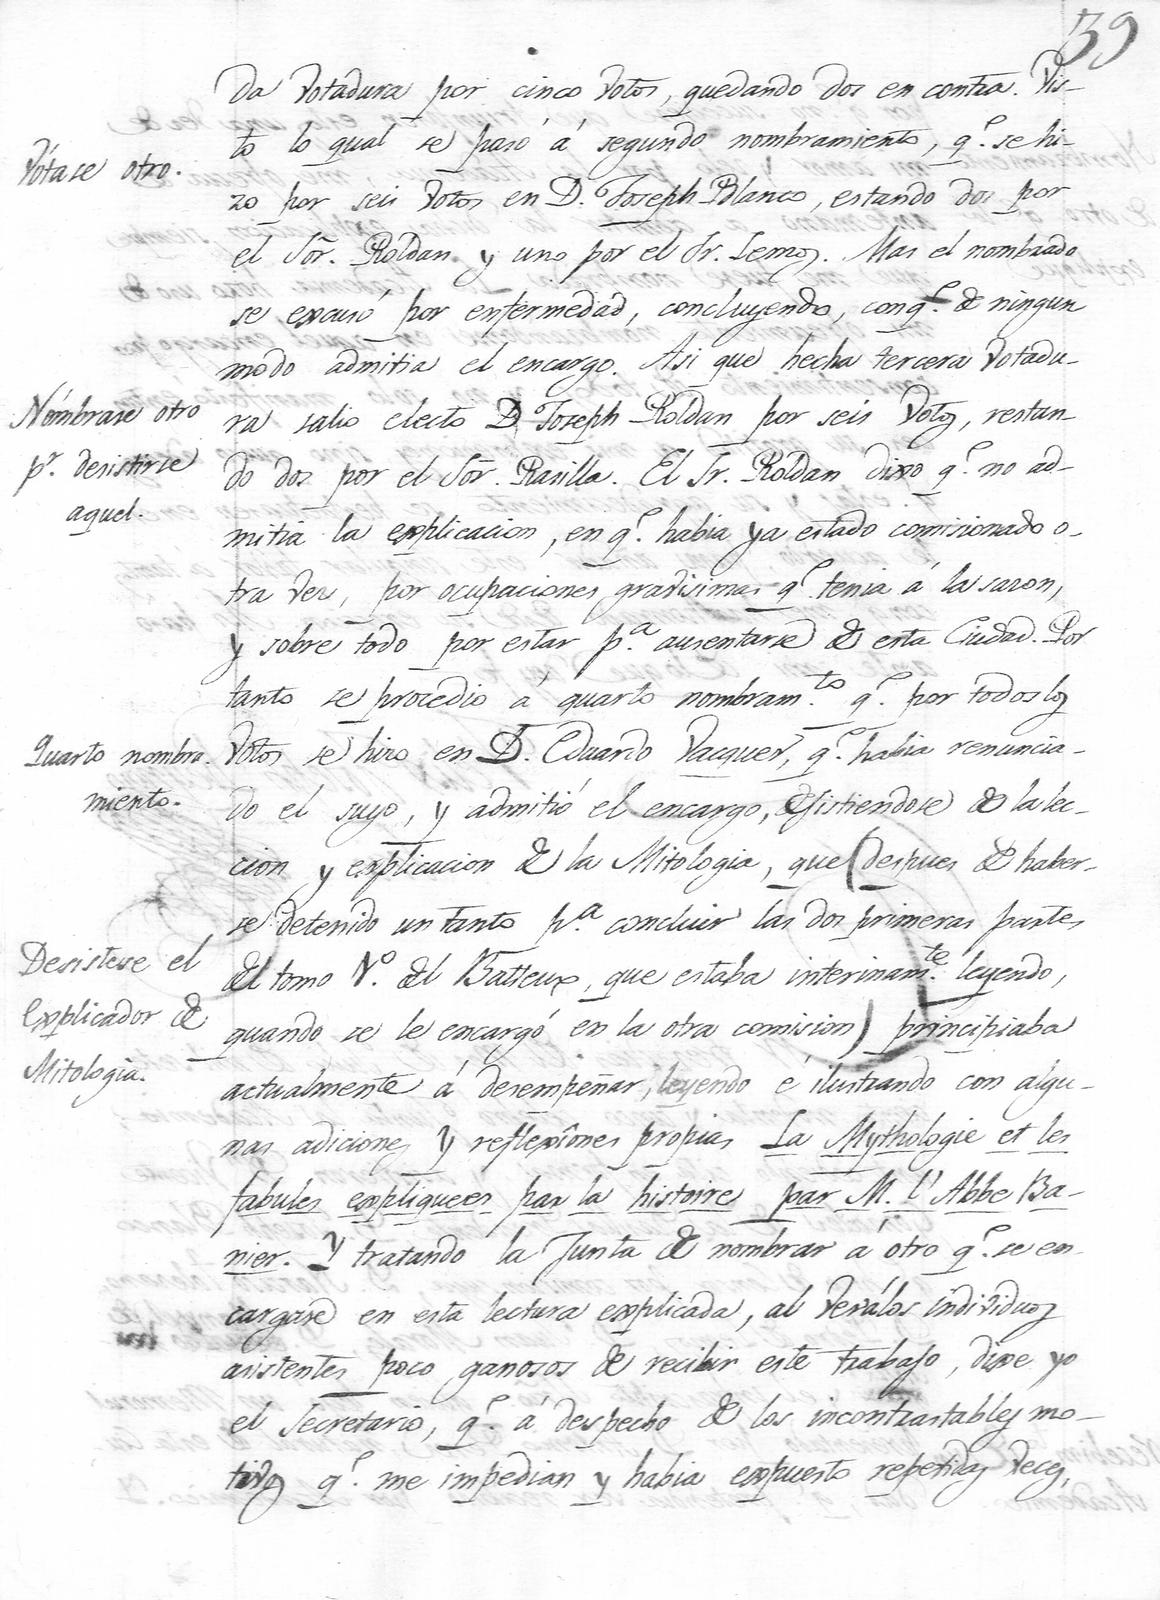 39
da votadura por cinco votos, quedando dos en contra. Vis-
to lo qual se pasó á segundo nombramiento, q.e se hi-
Vótase otro.
zo por seis votos en D. Joseph Blanco, estando dos por
el Sõr. Roldan y uno por el Sr. Lemos. Mas el nombrado
se excusó por enfermedad, concluyendo, conq.e de ningun
modo admitia el encargo. Asi que hecha tercera votadu-
Nómbrase otro
pr. desistirse
aquel.
ra salio electo D. Joseph Roldan por seis votos, restan-
do dos por el Sõr. Rasilla. El Sr. Roldan dixo q.e no ad-
mitia la explicacion, en q.e habia ya estado comisionado o-
tra vez, por ocupaciones gravisimas q.e tenia á la sazon,
y sobre todo por estar p.a ausentarse de esta Ciudad. Por
tanto se procedio á quarto nombram.to q.e por todos los
Quarto nombra-
miento.
votos se hizo en D. Eduardo Vacquer, q.e habia renuncia-
do el suyo, y admitió el encargo, desistiendose de la lec-
cion y explicacion de la Mitologia, que (despues de haber-
se detenido un tanto p.a concluir las dos primeras partes
Desistese el
Explicador de
Mitologia.
del tomo V.o del Batteux, que estaba interinam.te leyendo,
quando se le encargó en la otra comision) principiaba
actualmente á desempeñar, leyendo é ilustrando con algu-
nas adiciones y reflexîones propias La Mythologie et les
fabules expliquees par la histoire par M. l' Abbe Ba-
nier. Y tratando la Junta de nombrar á otro q.e se en-
cargase en esta lectura explicada, al ver á los individuos
asistentes poco ganosos de recibir este trabajo, dixe yo
el Secretario, q.e á despecho de los incontrastables mo-
tivos q.e me impedian y habia expuesto repetidas veces,